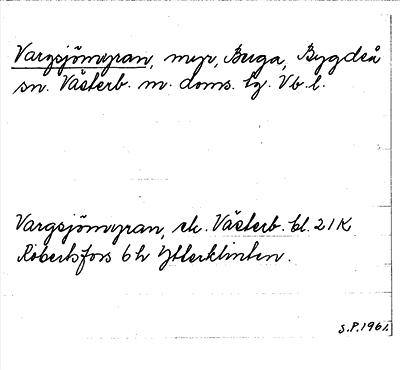 Vargsjömyran, myr, Buga, Bygdeå
sn. Västerb. m. doms. lg. Vb. l.
Vargsjömyran, ek. Västerb. bl. 21K
Robertsfors 6h Ytterklinten.
S.P. 1961.